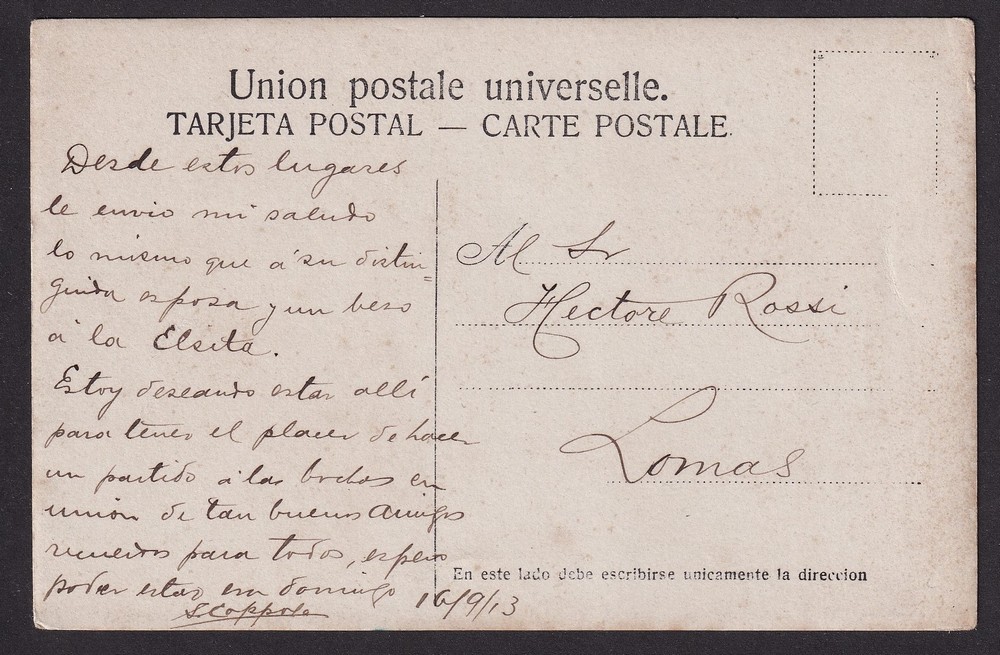 Union postale universelle.
TARJETA POSTAL — CARTE POSTALE.
Desde estos lugares
le envio mi saludo
lo mismo que á su distin=
guida esposa y un beso
á la Elsita.
Estoy deseando estar allí
para tener el placer de hacer
un partido á las bochas en
unión de tan buenos amigos
recuerdos para todos, espero
poder estar en domingo
S. Coppola 16/9/13
Al Sr
Hectore Rossi
Lomas
En este lado debe escribirse unicamente la direccion